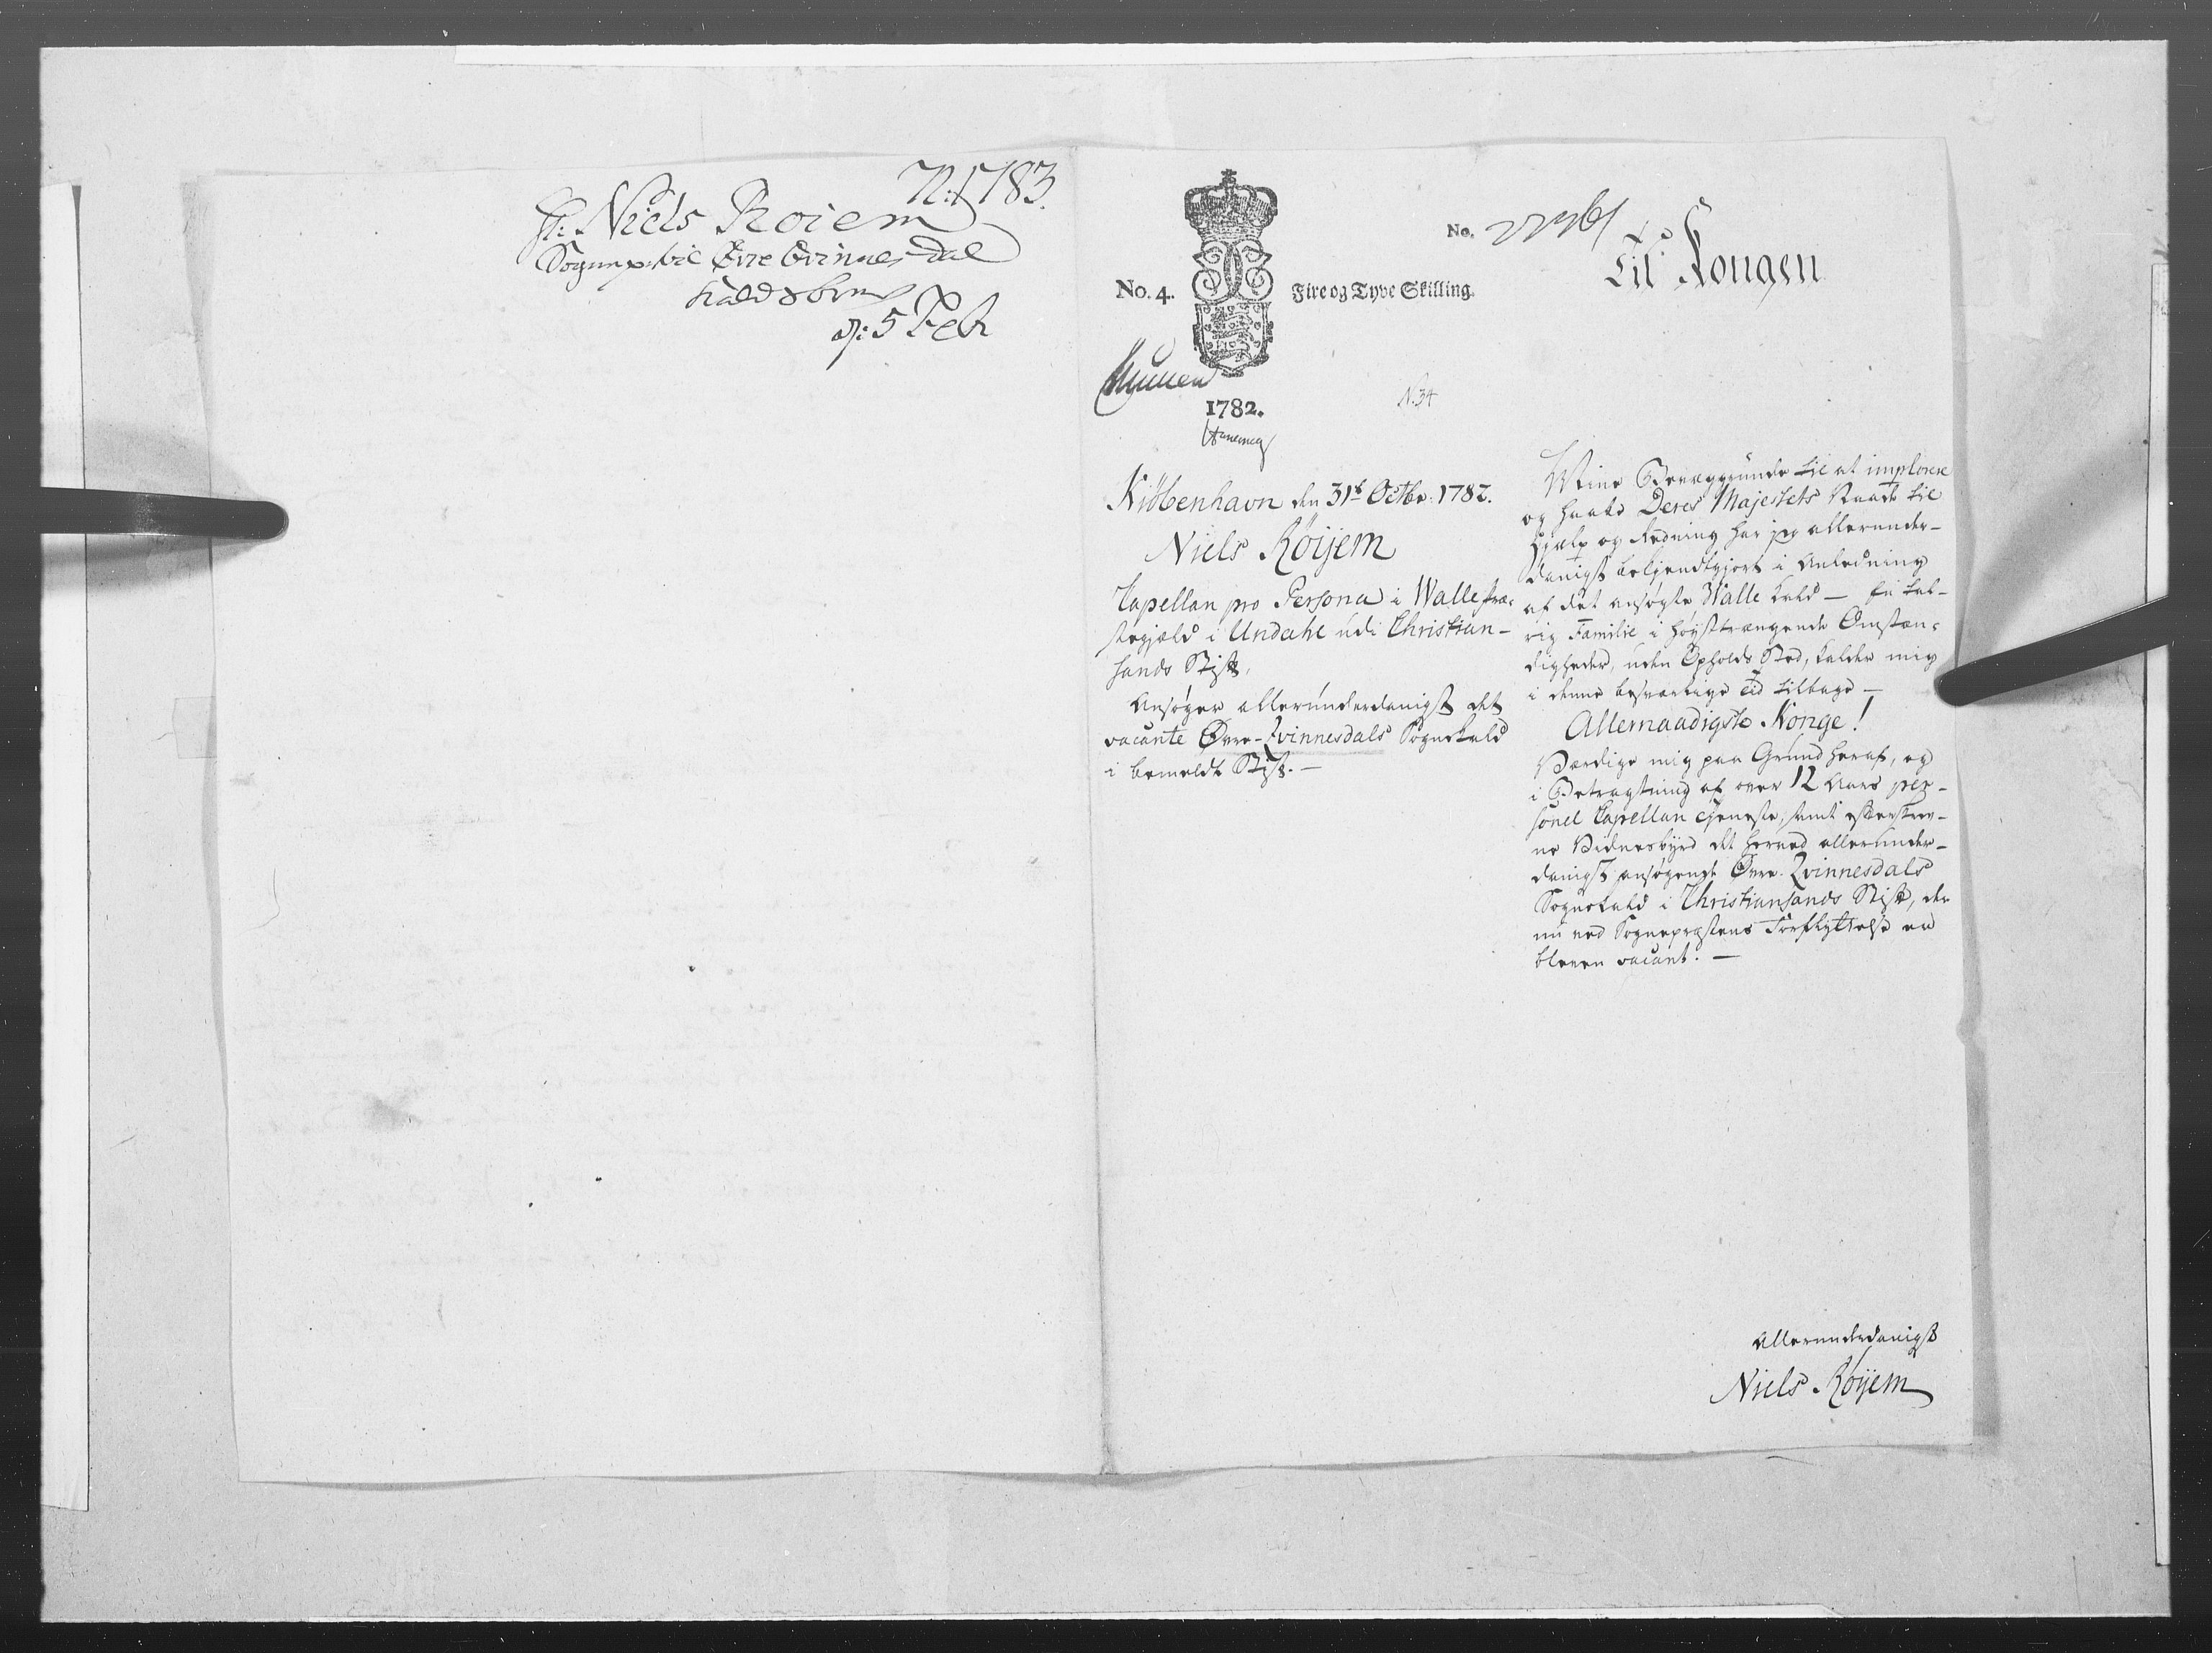 N: 1783.
Hr: Niels Roiem
Sognepr: til Øvre Qvinnesdal
Kaldsbrev
d: 5 Feb
No. 4.
Fire og Tyve Skilling.
No.
Til Kongen
1782.
N. 34
Kiöbenhavn den 31t Octbr. 1782.
Niels Röijem
Capellan pro Persona i Walle Præ-
stegjæld i Undahl udi Christian-
sands Stift,
Ansøger allerunderdanigst det
vacante Øvre-Qvinnesdals Sognekald
i bemeldte Stift. —
Mine Bevæggrunde til at implorere
og haabe Deres Majestets Naade til
Hjælp og Redning har jeg allerunder-
danigst bekjendtgjort i Anledning
af det ansøgte Walle Kald — En tal-
rig Familie i høysttrængende Omstæn-
digheder, uden Opholds Sted, kalder mig
i denne besværlige Tid tilbage —
Allernaadigste Konge!
Værdige mig paa Grund heraf, og
i Betragtning af over 12 Aars per-
sonel Capellan Tjeneste, samt efterskrev-
ne Vidnesbyrd det herved allerunder-
danigst ansøgende Øvre-Qvinnesdals
Sognekald i Christiansands Stift, der
nu ved Sognepræstens Forflyttelse er
bleven vacant. —
Allerunderdanigst
Niels Röijem